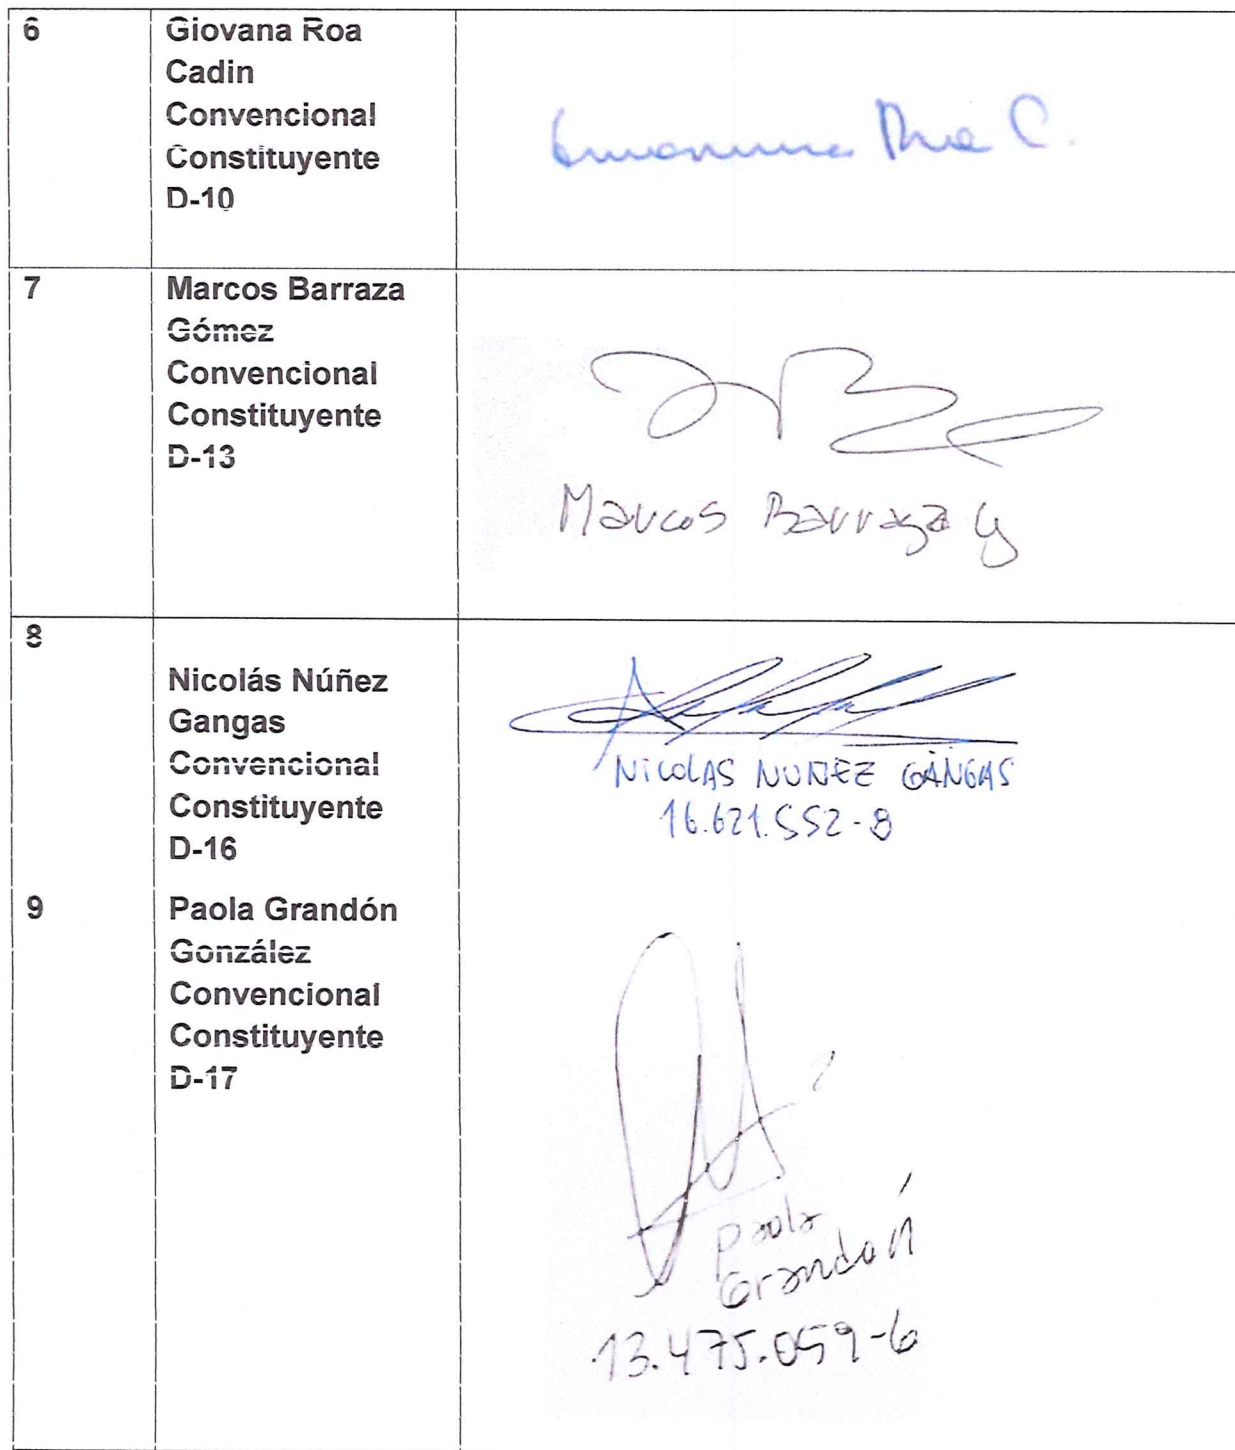 6
Giovana Roa
Cadin
Convencional
Constituyente
D-10
Roa C.
7
Marcos Barraza
Gómez
Convencional
Constituyente
D-13
Marcos Barraza G
8
Nicolás Núñez
Gangas
Convencional
Constituyente
D-16
NICOLAS NUÑEZ GANGAS
16.621.552-8
9
Paola Grandón
González
Convencional
Constituyente
D-17
Paola
Grandón
13.475.059-6